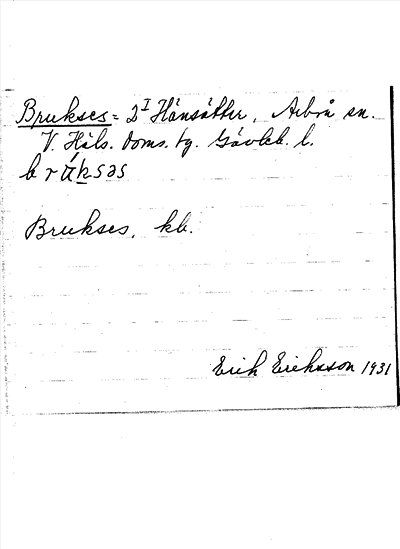 Brukses = 2 I Hänsätter, Arbrå sn.
V. Häls. Doms. tg. Gävleb. l.
brúksəs
Brukses, kb.
Erik Eriksson 1931